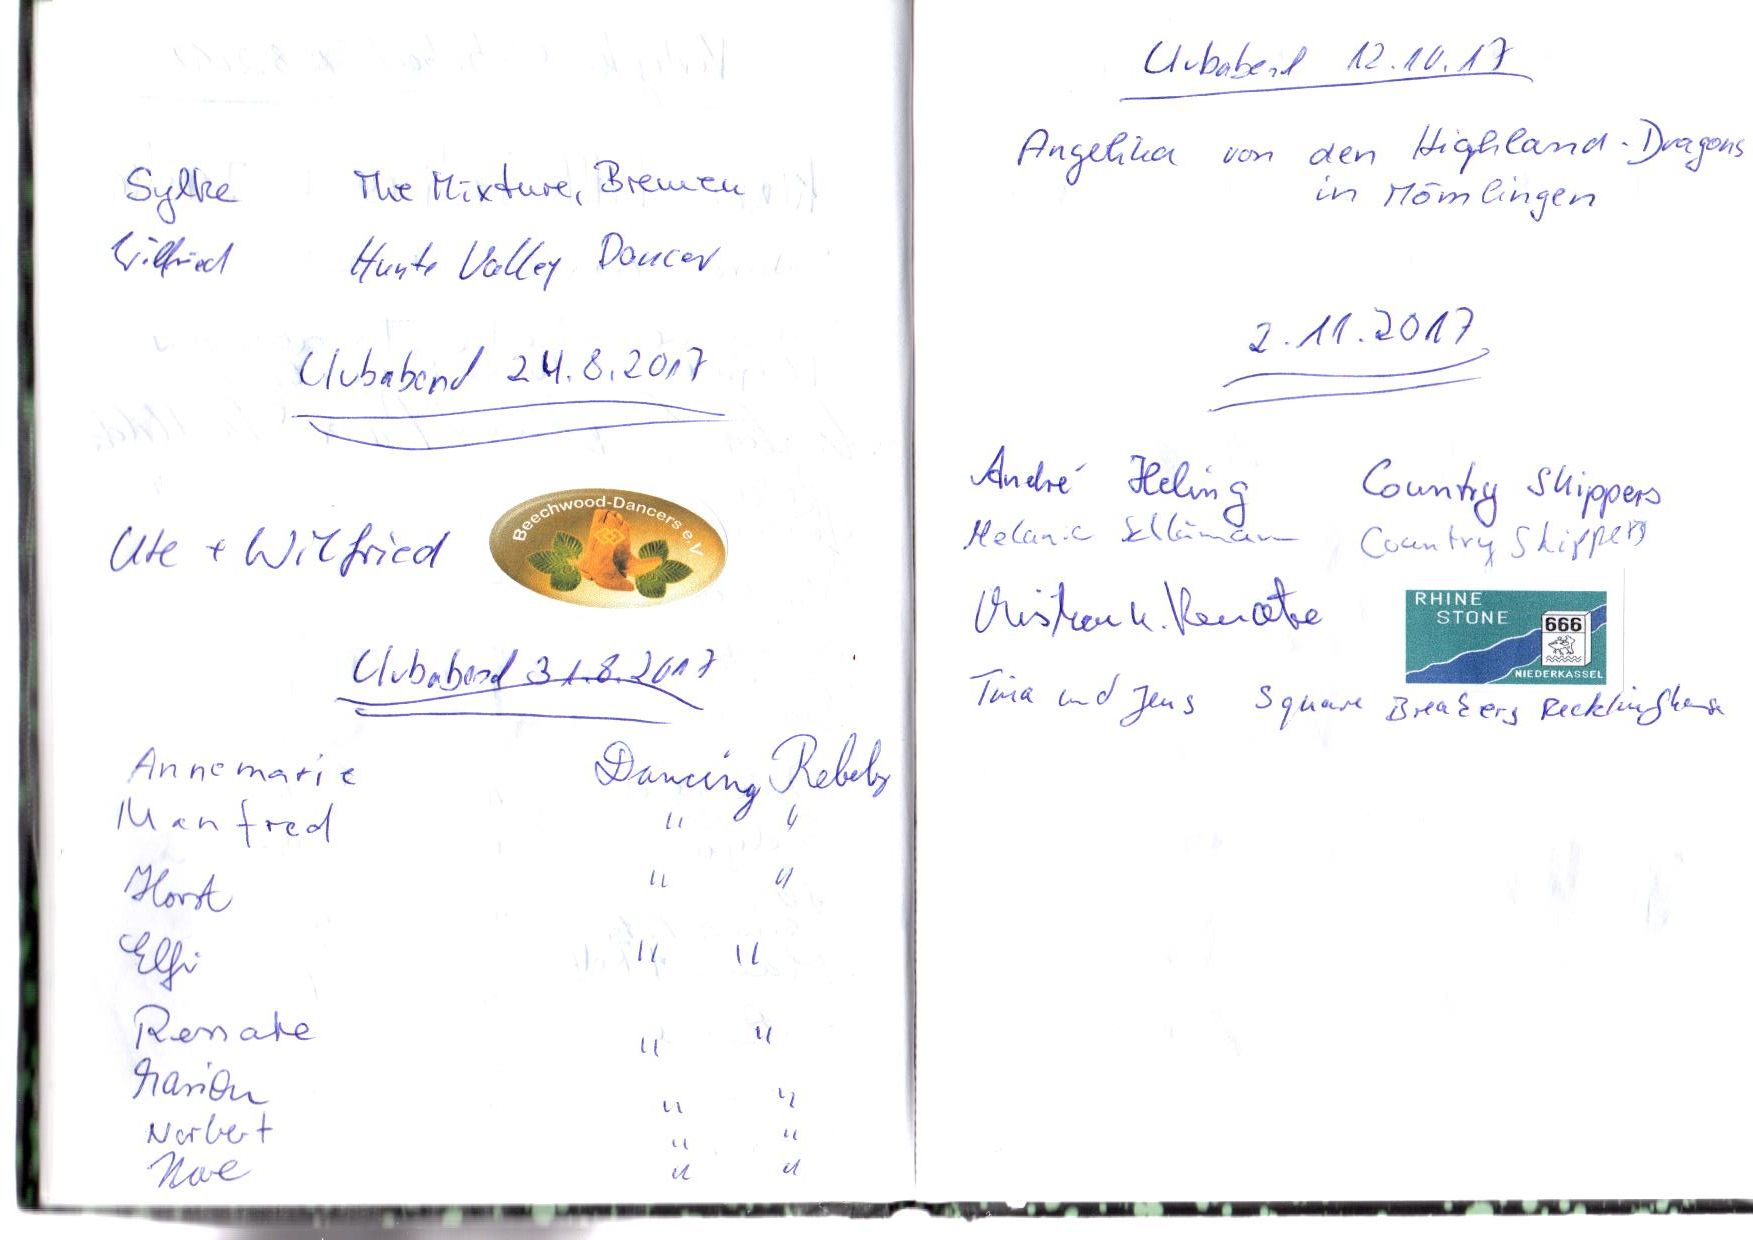 Sylke The Mixture, Bremen
Wilfried Hunte Valley Dancer
Clubabend 24.8.2017
Ute + Wilfried Beechwood-Dancers e.V.
Clubabend 31.8.2017
Annemarie Dancing Rebels
Manfred " "
Horst " "
Elfi " "
Renate " "
Marion " "
Norbert " "
" "
Clubabend 12.10.17
Angelika von den Highland-Dragons
in Mömlingen
2.11.2017
André Heling Country Skippers
Melanie Country Skippers
Christian u. Renate RHINE
STONE
666
NIEDERKASSEL
Tina und Jens Square Breakers Recklinghausen